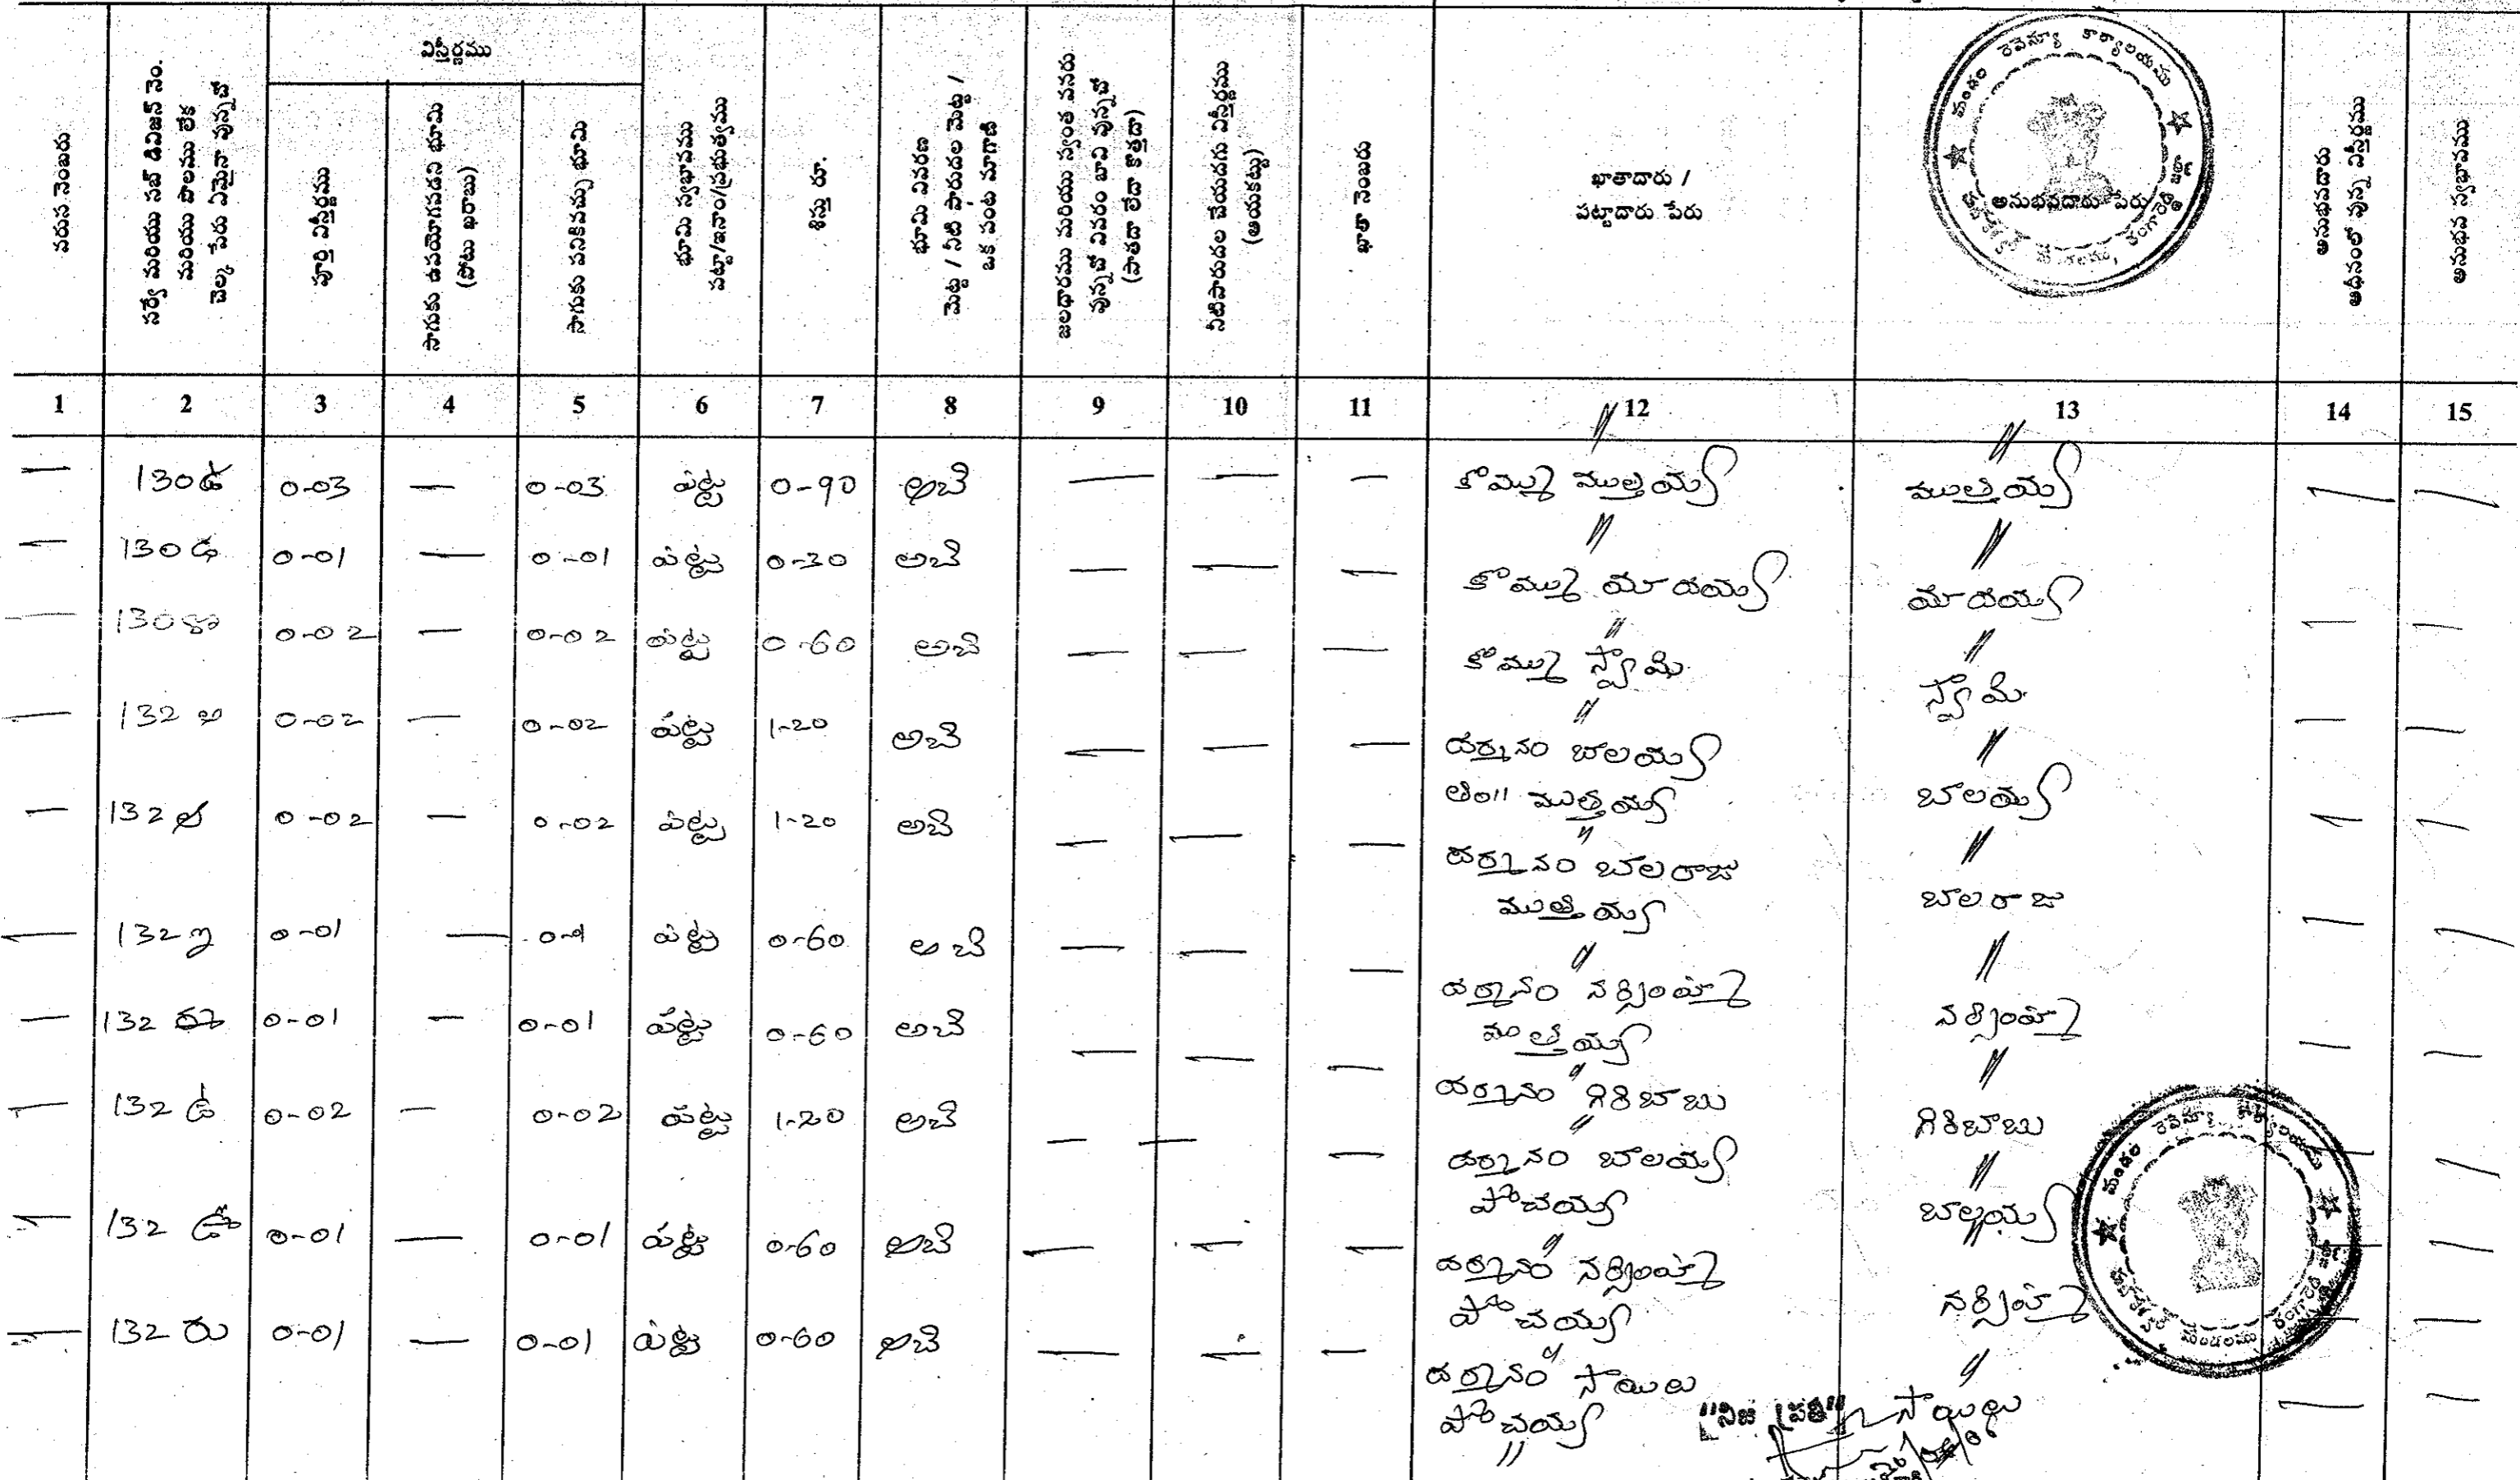 వరుస నెంబరు
సర్వే మరియు సబ్ డివిజన్ నెం.
మరియు పొలము లేక
చెల్క పేరు ఏమైనా వున్నచో
విస్తీర్ణము
పూర్తి విస్తీర్ణము
సాగుకు ఉపయోగపడని భూమి
(పోటు ఖరాబు)
సాగుకు పనికివచ్చు భూమి
భూమి స్వభావము
పట్టా/ఇనాం/ప్రభుత్వము
శిస్తు రూ.
భూమి వివరణ
మెట్ట / నీటి పారుదల మెట్ట /
ఒక పంట మాగాణి
జలధారము మరియు స్వంత వనరు
వున్నచో వివరం బావి వున్నచో
(పాతదా లేదా కొత్తదా)
నీటిపారుదల చేయదగు విస్తీర్ణము
(ఆయకట్టు)
ఖాతా నెంబరు
ఖాతాదారు /
పట్టాదారు పేరు
మండల రెవెన్యూ కార్యాలయము
అనుభవదారు పేరు
అనుభవదారు
ఆధీనంలో వున్న విస్తీర్ణము
అనుభవ స్వభావము
1 2 3 4 5 6 7 8 9 10 11 12 13 14 15
— 130డ 0-03 — 0-03 పట్ట 0-90 అబి — — — కొమ్ము ముత్తయ్య ముత్తయ్య — —
— 130ఢ 0-01 — 0-01 పట్ట 0-30 అబి — — — కొమ్ము యాదయ్య యాదయ్య — —
— 130 0-02 — 0-02 పట్ట 0-60 అబి — — — కొమ్ము స్వామి స్వామి — —
— 132 అ 0-02 — 0-02 పట్ట 1-20 అబి — — — దర్శనం బాలయ్య బాలయ్య — —
తం॥ ముత్తయ్య
— 132 ఆ 0-02 — 0-02 పట్ట 1-20 అబి — — — దర్శనం బాలరాజు బాలరాజు — —
ముత్తయ్య
— 132 ఇ 0-01 — 0-1 పట్ట 0-60 అబి — — — దర్శనం నర్సింహ్మా నర్సింహ్మా — —
ముత్తయ్య
— 132 ఈ 0-01 — 0-01 పట్ట 0-60 అబి — — — దర్శనం గిరిబాబు గిరిబాబు — —
— 132 ఉ 0-02 — 0-02 పట్ట 1-20 అబి — — — దర్శనం బాలయ్య బాలయ్య — —
పోచయ్య
— 132 ఊ 0-01 — 0-01 పట్ట 0-60 అబి — — — దర్శనం నర్సింహ్మా నర్సింహ్మా — —
పోచయ్య
— 132 ఋ 0-01 — 0-01 పట్ట 0-60 అబి — — — దర్శనం సాయిలు సాయిలు — —
పోచయ్య
"నిజ ప్రతి"
మండల రెవెన్యూ కార్యాలయము
మండలము